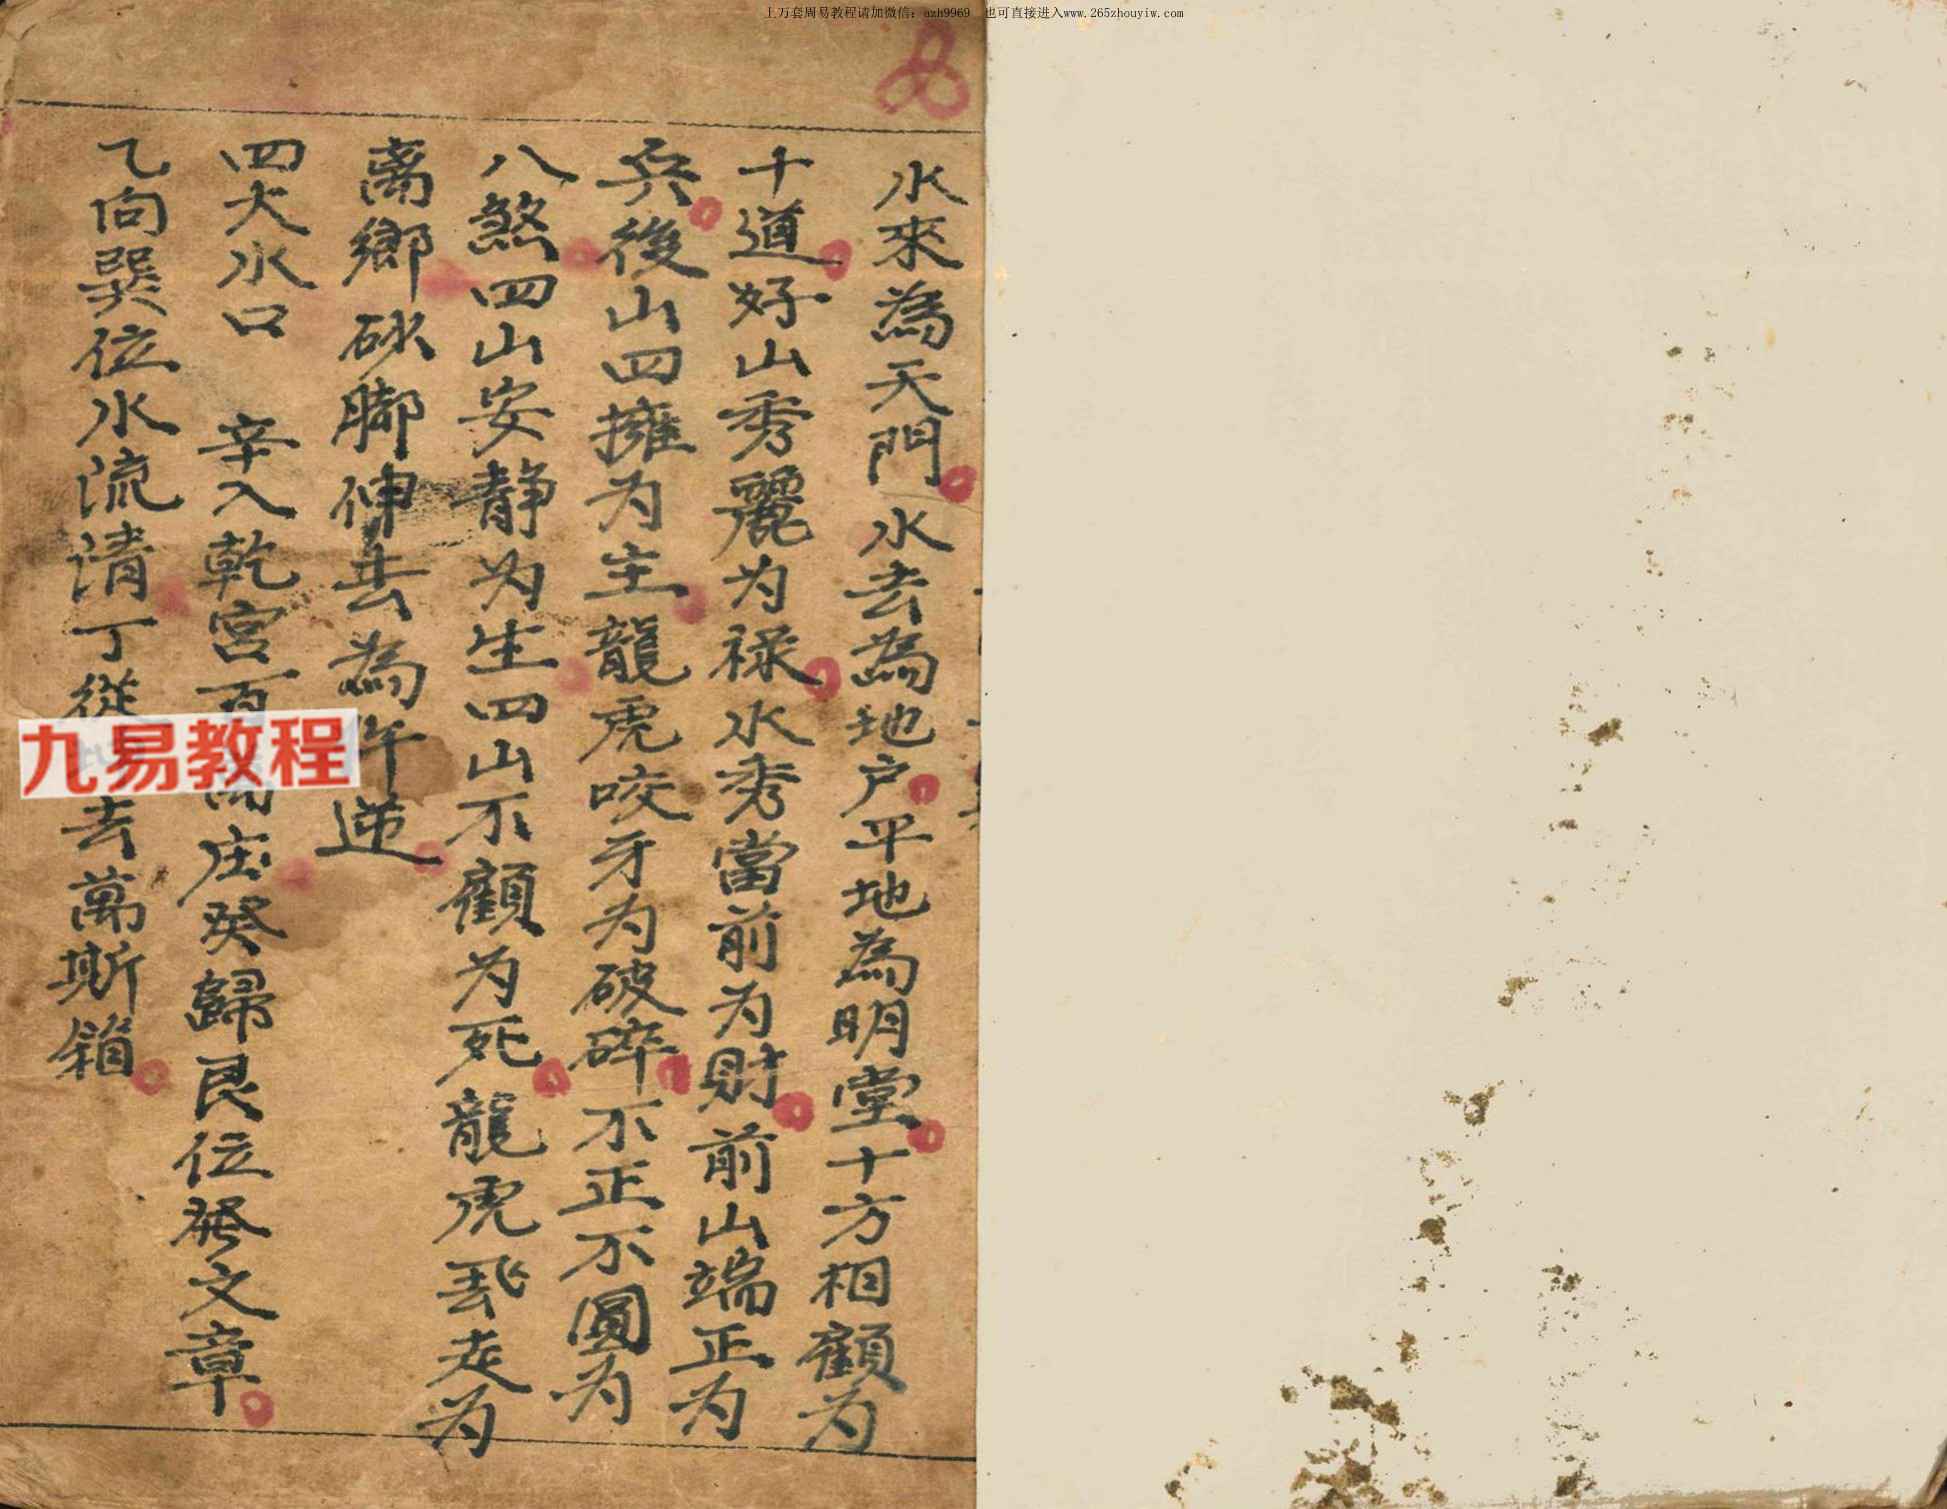 上万套周易教程请加微信：azh9969 也可直接进入www.265zhouyiw.com
水來為天門水去為地户平地為明堂十方相顧为
十道好山秀麗为禄水秀當前为財前山端正为
兵後山四擁为主龍虎咬牙为破碎不正不圓为
八煞四山安静为生四山不顧为死龍虎飛走为
离鄉砂脚伸去為忤逆
四大水口 辛入乾宫百萬庄癸歸艮位発文章
乙向巽位水流清丁從去萬斯箱
九易教程